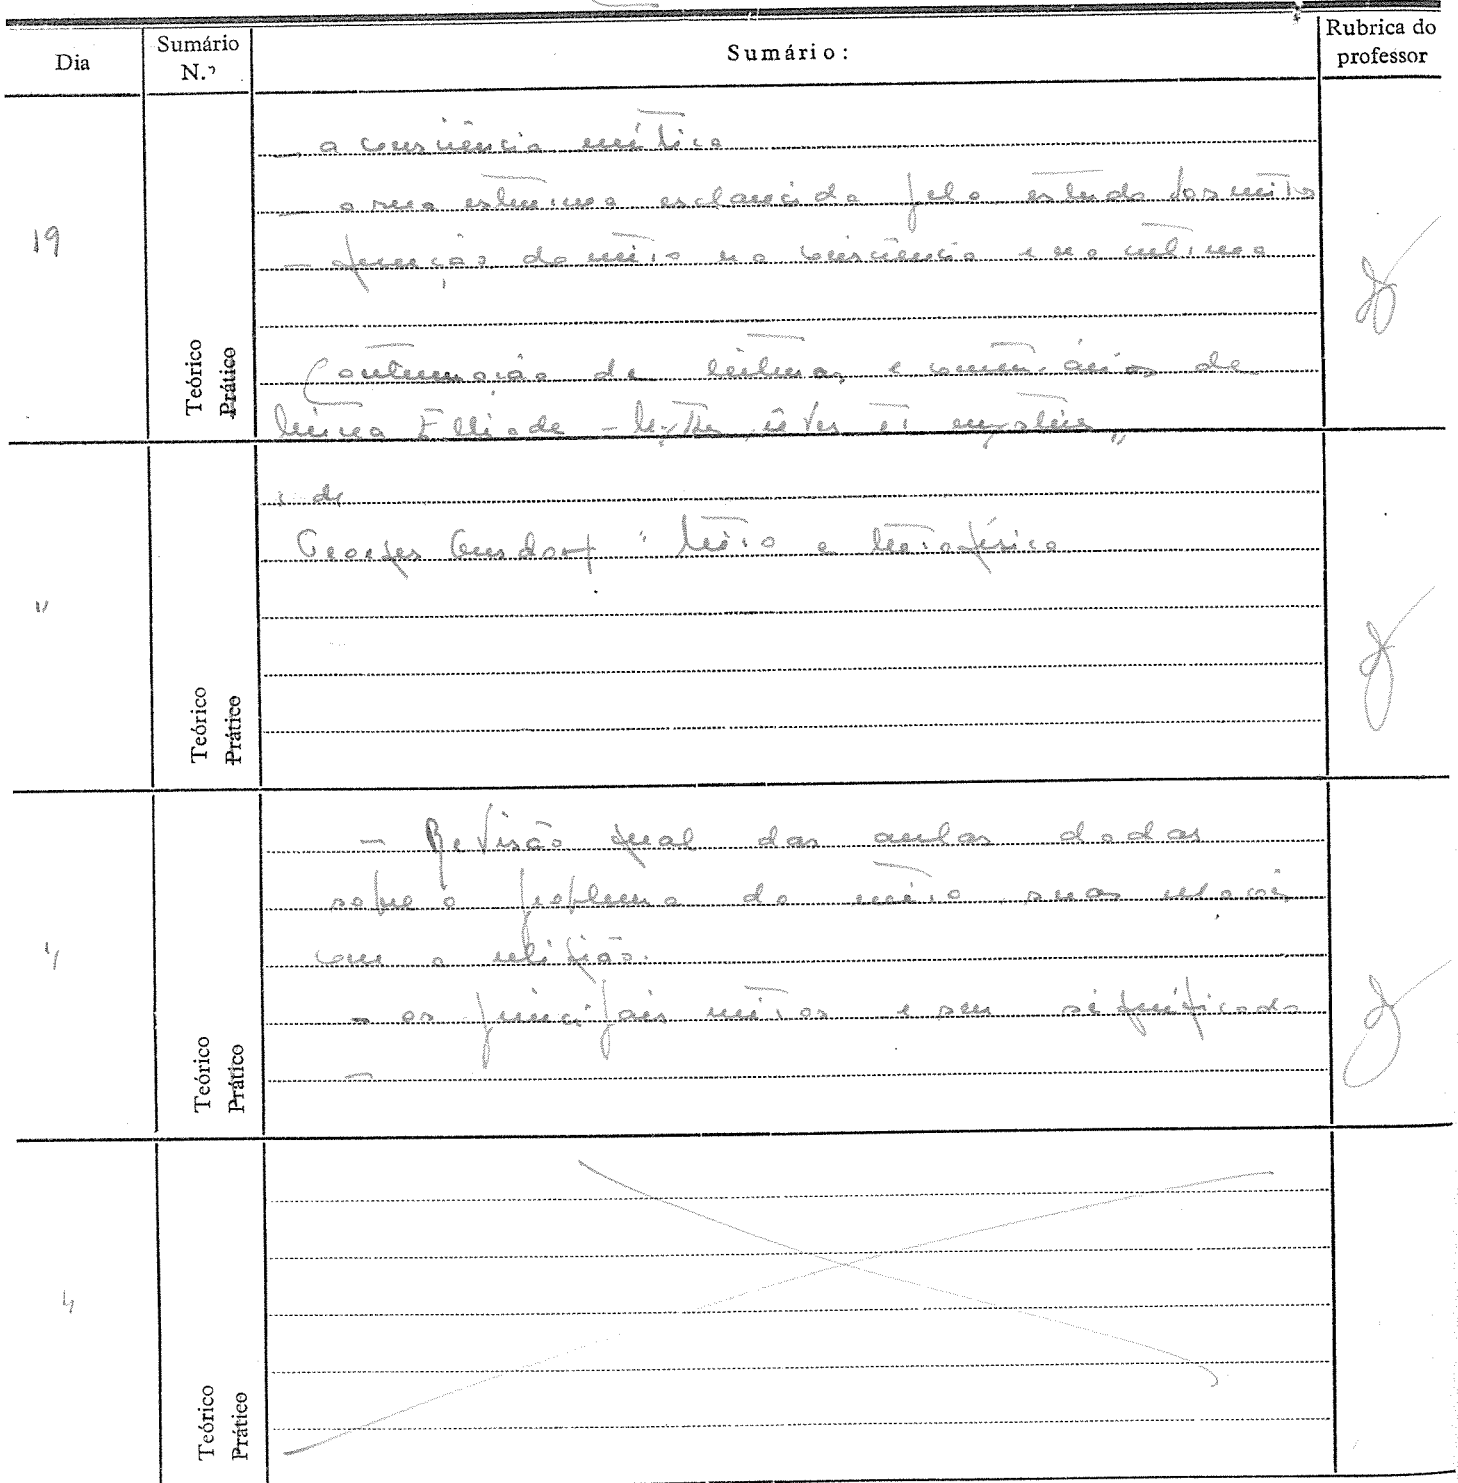 Dia
Sumário N.º
Sumário:
Rubrica do professor
19
Teórico
Prático
- a consciência mítica
- a sua estrutura esclarecida pelo estudo dos mitos
- função do mito na consciência e na cultura
Continuação de leituras e comentários de
Mircea Elliade - Mythes, rêves et mystères"
"
Teórico
Prático
e de
Georges Gusdorf "Mito e Metafísica
"
Teórico
Prático
- Revisão geral das aulas dadas
sobre o problema do mito suas relações
com a religião.
- os principais mitos e seu significado
-
"
Teórico
Prático